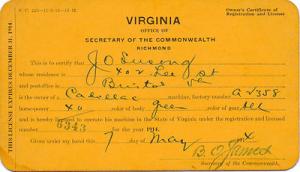 VIRGINIA
OFFICE OF
SECRETARY OF THE COMMONWEALTH
RICHMOND
Owner's Certificate of
Registration and License
THIS LICENSE EXPIRES DECEMBER 31, 1914.
This is to certify that J O Susong
whose residence is 802 Lee St
Bristol Va
is the owner of a Cadillac machine, factory number A2358
horse-power 40 color of body green color of
and is hereby licensed to operate his machine in the State of Virginia under registration and license
number 6343 for the year 1914.
Given under my hand this 7 day of May
B. O. James
Secretary of the Commonwealth.